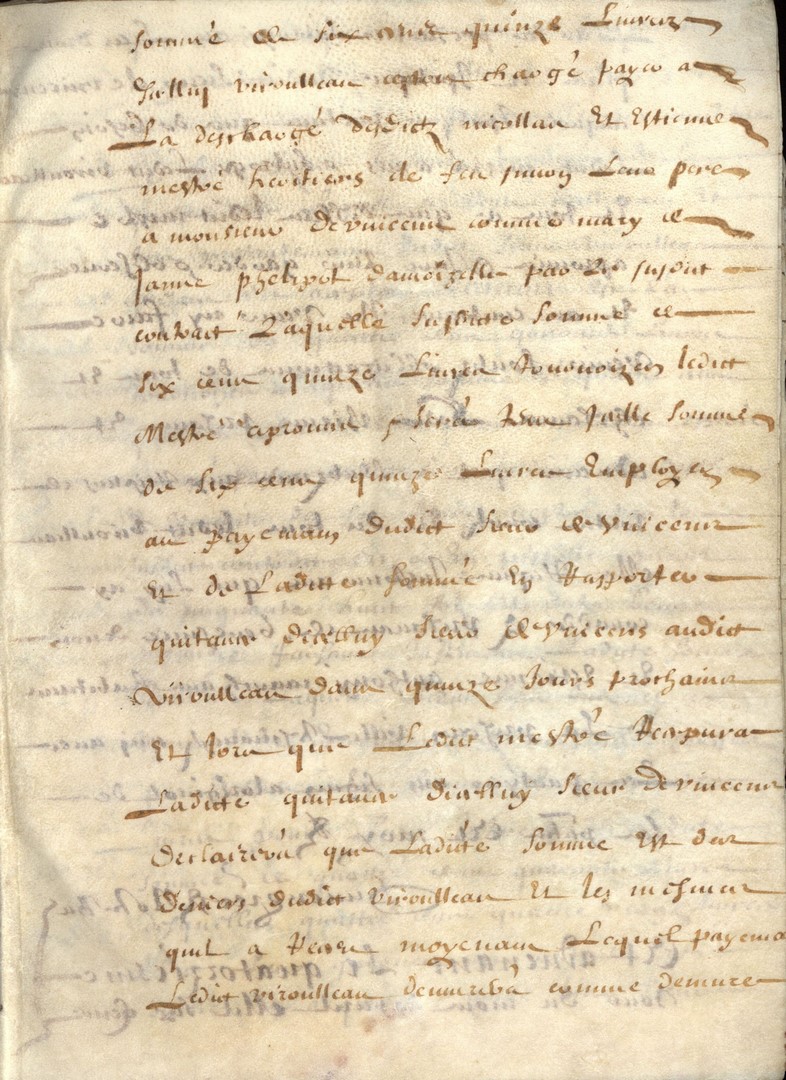 somme de six cens quinze Livres
Icelluy viroulleau estoit chargé payer a
La descharge desdictz nicollau Et Estienne
mestré heritiers de feu Leur pere
a monsieur devuicenne comme mary de
Janne phelipot damoizelle par Le susdict
contrait Laquelle susdicte somme de
six cens quinze Livres tournoizes ledict
Mestré sera tenu Icelle somme
de six cens quinze Livres Employer
au payemans dudict sieur devuicenne
Et de Laditte somme En Rapporter
quitance dicelluy sieur devuicenne audict
viroulleau dans quinze Jours prochains
Et lors que Ledict mestré Raportera
Ladicte quitance dicelluy sieur Devuicenne
declairera que Ladicte somme Est des
deniers dudict viroulleau Et les mesmes
quil a Reseu moyenant Lequel payema
Ledict viroulleau demeurera comme demure